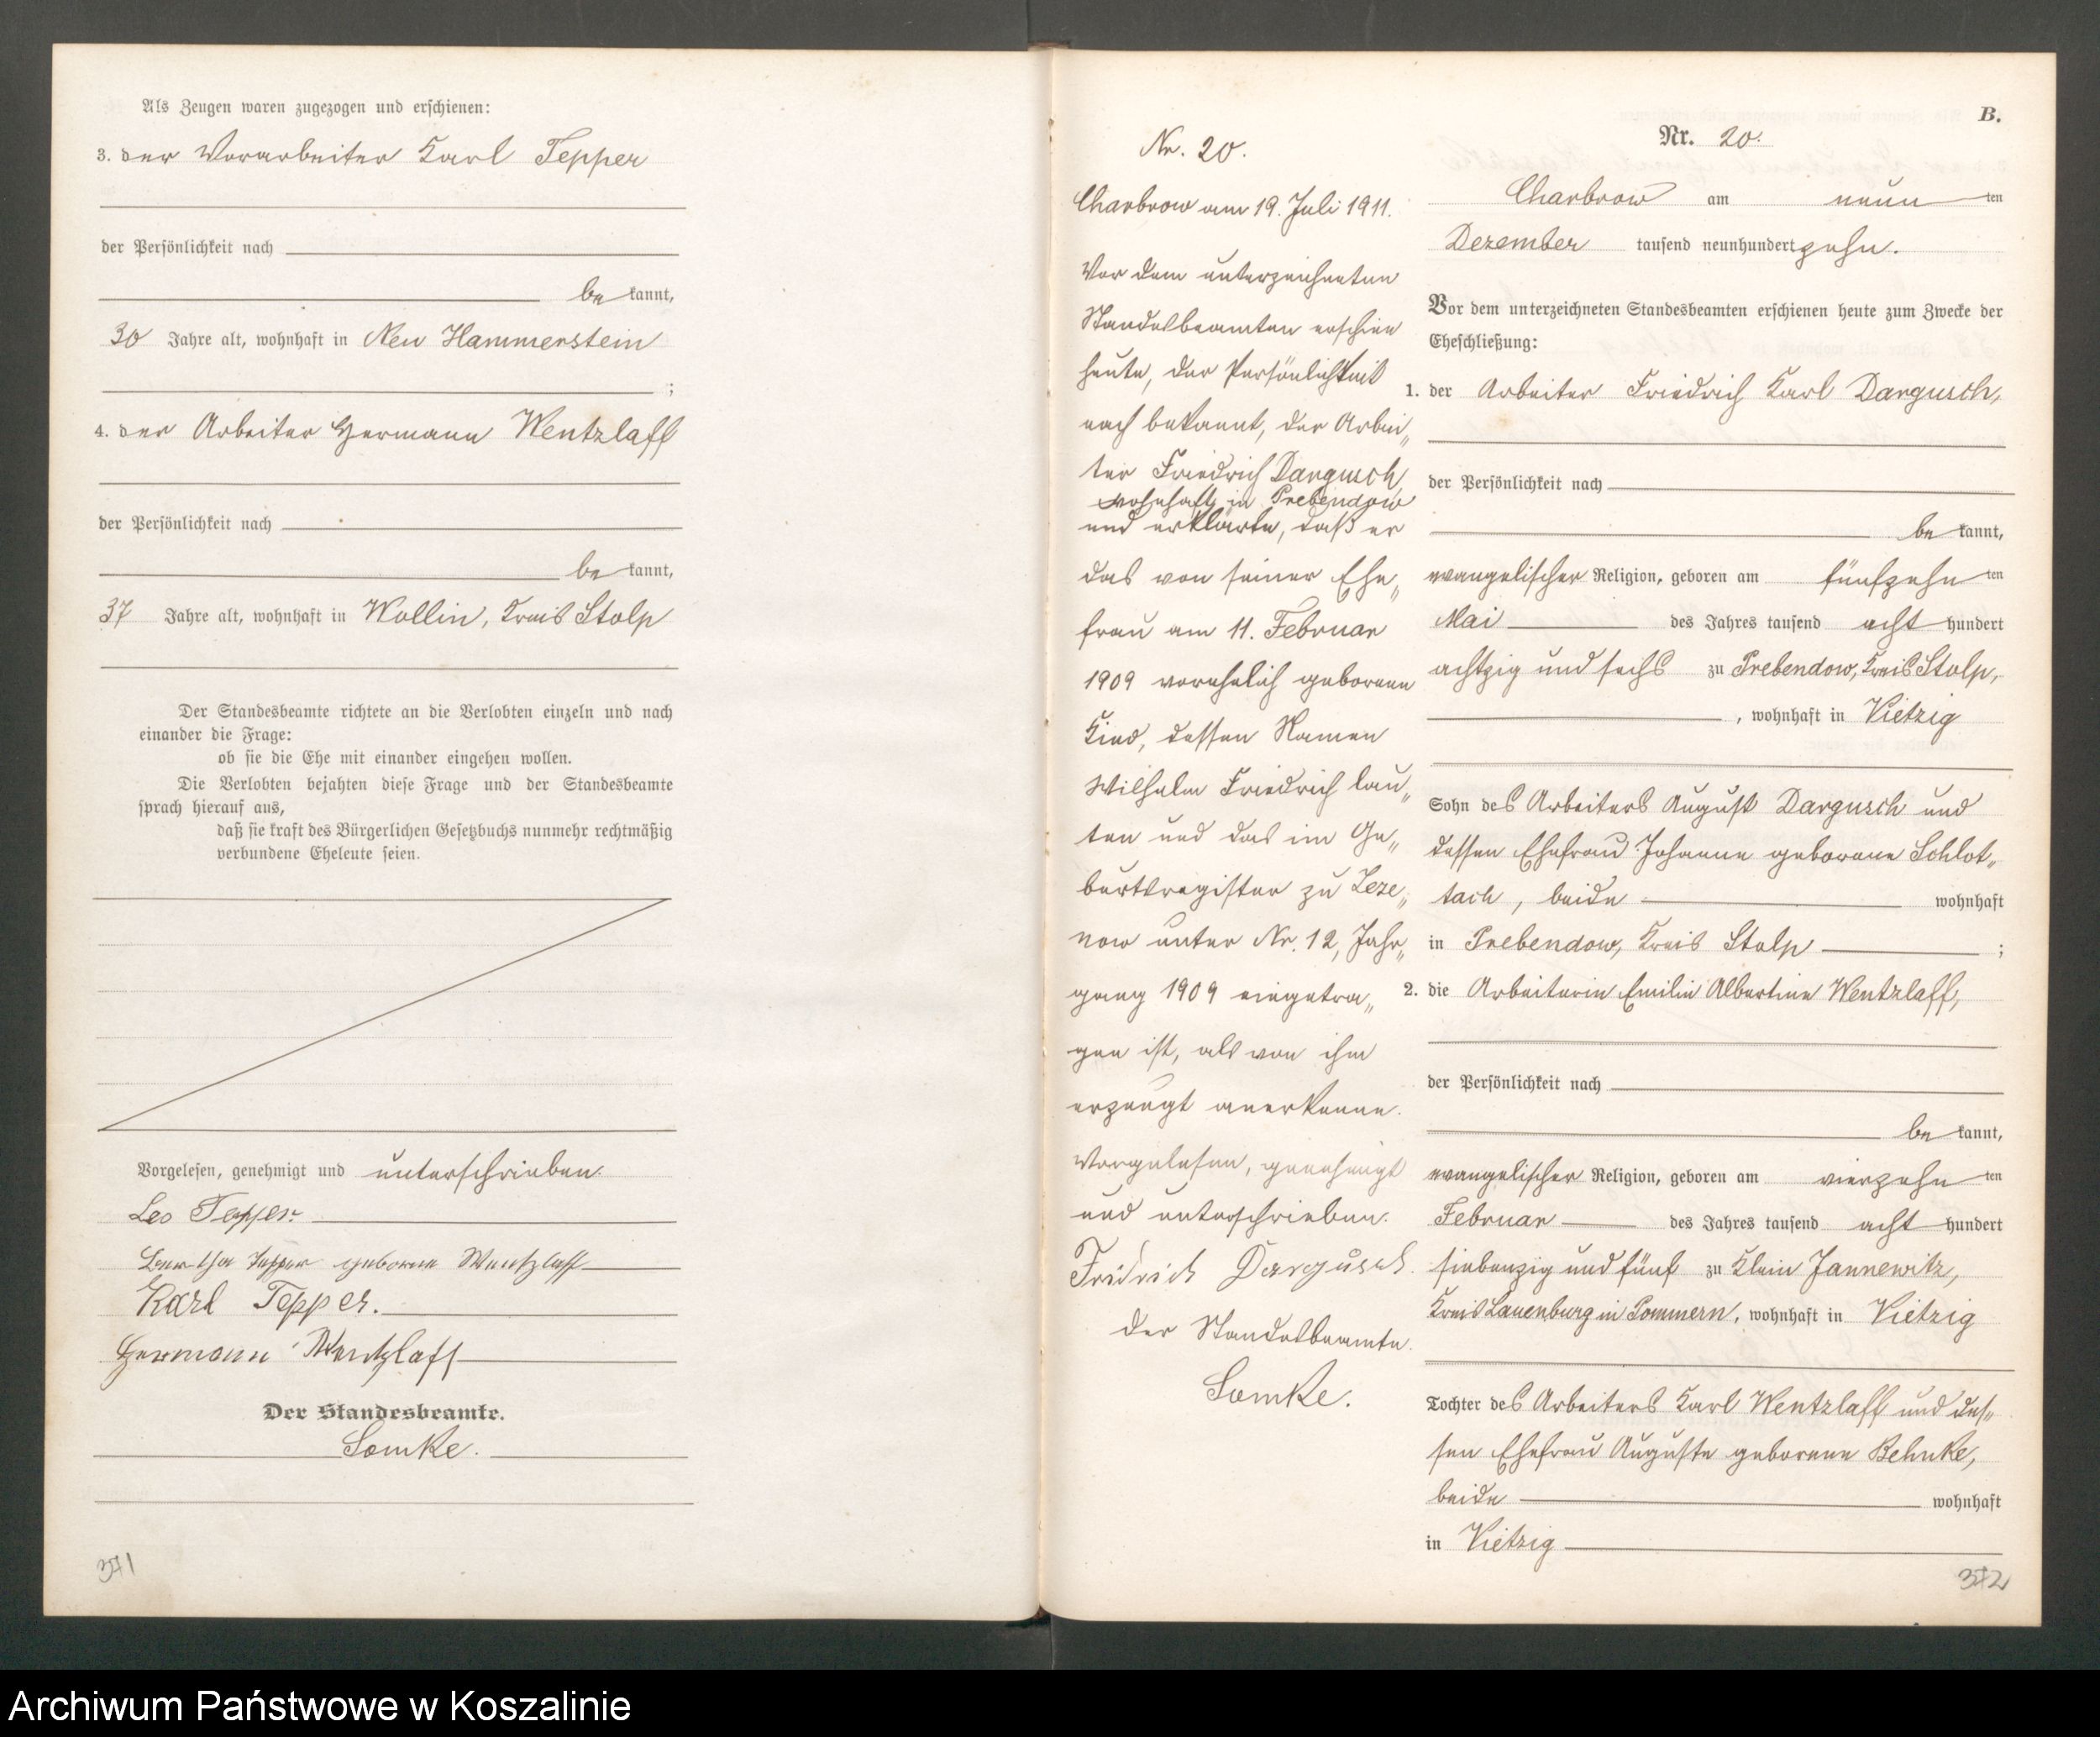 Als Zeugen waren zugezogen und erschienen:
3. der Vorarbeiter Karl Tepper
der Persönlichkeit nach
be kannt,
30 Jahre alt, wohnhaft in Neu Hammerstein
;
4. der Arbeiter Hermann Wentzlaff
der Persönlichkeit nach
be kannt,
37 Jahre alt, wohnhaft in Wollin, Kreis Stolp
Der Standesbeamte richtete an die Verlobten einzeln und nach
einander die Frage:
ob sie die Ehe mit einander eingehen wollen.
Die Verlobten bejahten diese Frage und der Standesbeamte
sprach hierauf aus,
daß sie kraft des Bürgerlichen Gesetzbuchs nunmehr rechtmäßig
verbundene Eheleute seien.
Vorgelesen, genehmigt und unterschrieben.
Leo Tepper.
Bertha Tepper geborene Wentzlaff
Karl Tepper.
Hermann Wentzlaff
Der Standesbeamte.
Lomke.
371
Nr. 20.
Charbrow am 19. Juli 1911.
Vor dem unterzeichneten
Standesbeamten erschien
heute, der Persönlichkeit
nach bekannt, der Arbei„
ter Friedrich Dargusch
wohnhaft in Prebendow
und erklärte, daß er
das von seiner Ehe„
frau am 11. Februar
1909 vorehelich geborene
Kind, dessen Namen
Wilhelm Friedrich lau„
ten und das im Ge„
burtsregister zu Zeze„
now unter Nr. 12, Jahr„
gang 1909 eingetra„
gen ist, als von ihm
erzeugt anerkenne.
Vorgelesen, genehmigt
und unterschrieben.
Fridrich Dargusch.
Der Standesbeamte.
Lomke.
B.
Nr. 20.
Charbrow am neun ten
Dezember tausend neunhundert zehn.
Vor dem unterzeichneten Standesbeamten erschienen heute zum Zwecke der
Eheschließung:
1. der Arbeiter Friedrich Karl Dargusch,
der Persönlichkeit nach
be kannt,
evangelischer Religion, geboren am fünfzehn ten
Mai des Jahres tausend acht hundert
achtzig und sechs zu Prebendow, Kreis Stolp,
, wohnhaft in Vietzig
Sohn des Arbeiters August Dargusch und
dessen Ehefrau Johanne geborene Schlot„
tach, beide wohnhaft
in Prebendow, Kreis Stolp ;
2. die Arbeiterin Emilie Albertine Wentzlaff,
der Persönlichkeit nach
be kannt,
evangelischer Religion, geboren am vierzehn ten
Februar des Jahres tausend acht hundert
siebenzig und fünf zu Klein Jannewitz,
Kreis Lauenburg in Pommern, wohnhaft in Vietzig
Tochter des Arbeiters Karl Wentzlaff und des„
sen Ehefrau Auguste geborene Behnke,
beide wohnhaft
in Vietzig
372
Archiwum Państwowe w Koszalinie